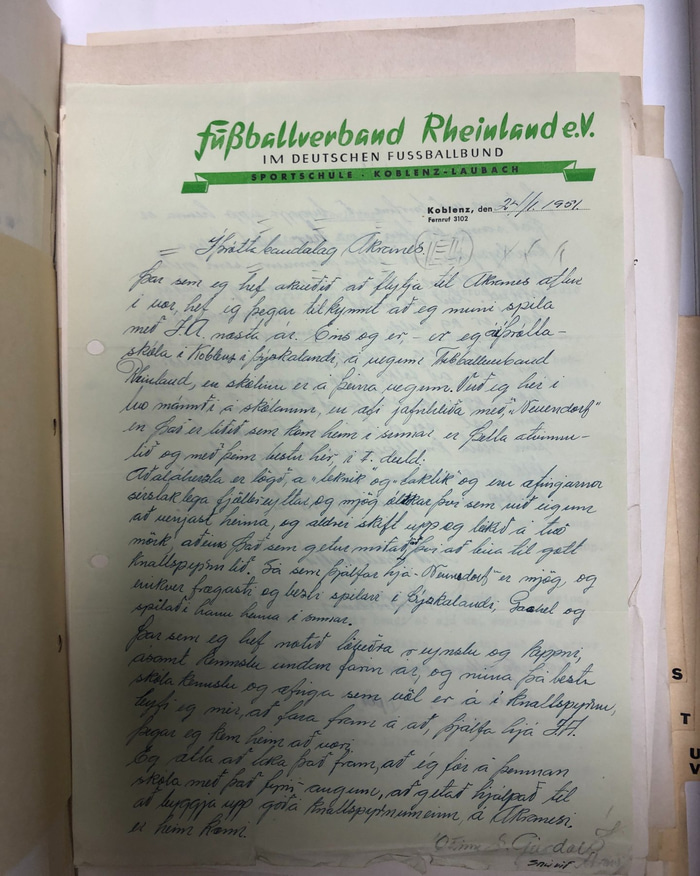 Fußballverband Rheinland e.V.
IM DEUTSCHEN FUSSBALLBUND
SPORTSCHULE · KOBLENZ-LAUBACH
Koblenz, den 24/1. 1951.
Fernruf 3102
Íþróttabandalag Akraness
Þar sem eg hef ákveðið að flytja til Akranes aftur
í vor, hef ég þegar tilkynnt að eg muni spila
með ÍA. næsta ár. Eins og er, - er eg á íþrótta-
skóla í Koblenz í Þýskalandi, á vegum Fussballverband
Rheinland, en skólinn er á þeirra vegum. Verð eg her í
tvo mánuði á skólanum, en æfi jafnhliða með, "Neuendorf"
en það er liðið sem kom heim í sumar, er þetta atvinnu-
lið og með þeim bestu hér, í 1. deild.
Aðaláherzla er lögð, á "teknik" og "taktik" og eru æfingarnar
sérstaklega fjölbreyttar, og mjög ólíkar því sem við eigum
að venjast heima, og aldrei skift upp og leikið á tvö
mörk, aðeins það sem getur miðað því að búa til gott
knallspyrnulið. Sá sem þjálfar hjá "Neuendorf" er mjög, og
einhver frægasti og bezti spilari í Þýskalandi, Gauchel og
spilaði hann heima í sumar.
Þar sem eg hef notið töluverðra reynslu og keppni,
ásamt kennslu undanfarin ár, og núna þá beztu
skóla kennslu og æfinga sem völ er á í knallspyrnu,
leyfi eg mér, að fara fram á að, þjálfa hjá ÍA.
þegar eg kem heim að vori.
Eg ætla að taka það fram, að ég fór á þennan
skóla með það fyrir augum, að geta hjálpað til
að byggja upp góða knallspyrnumenn á Akranesi,
er heim kæmi.
S
T
U
V